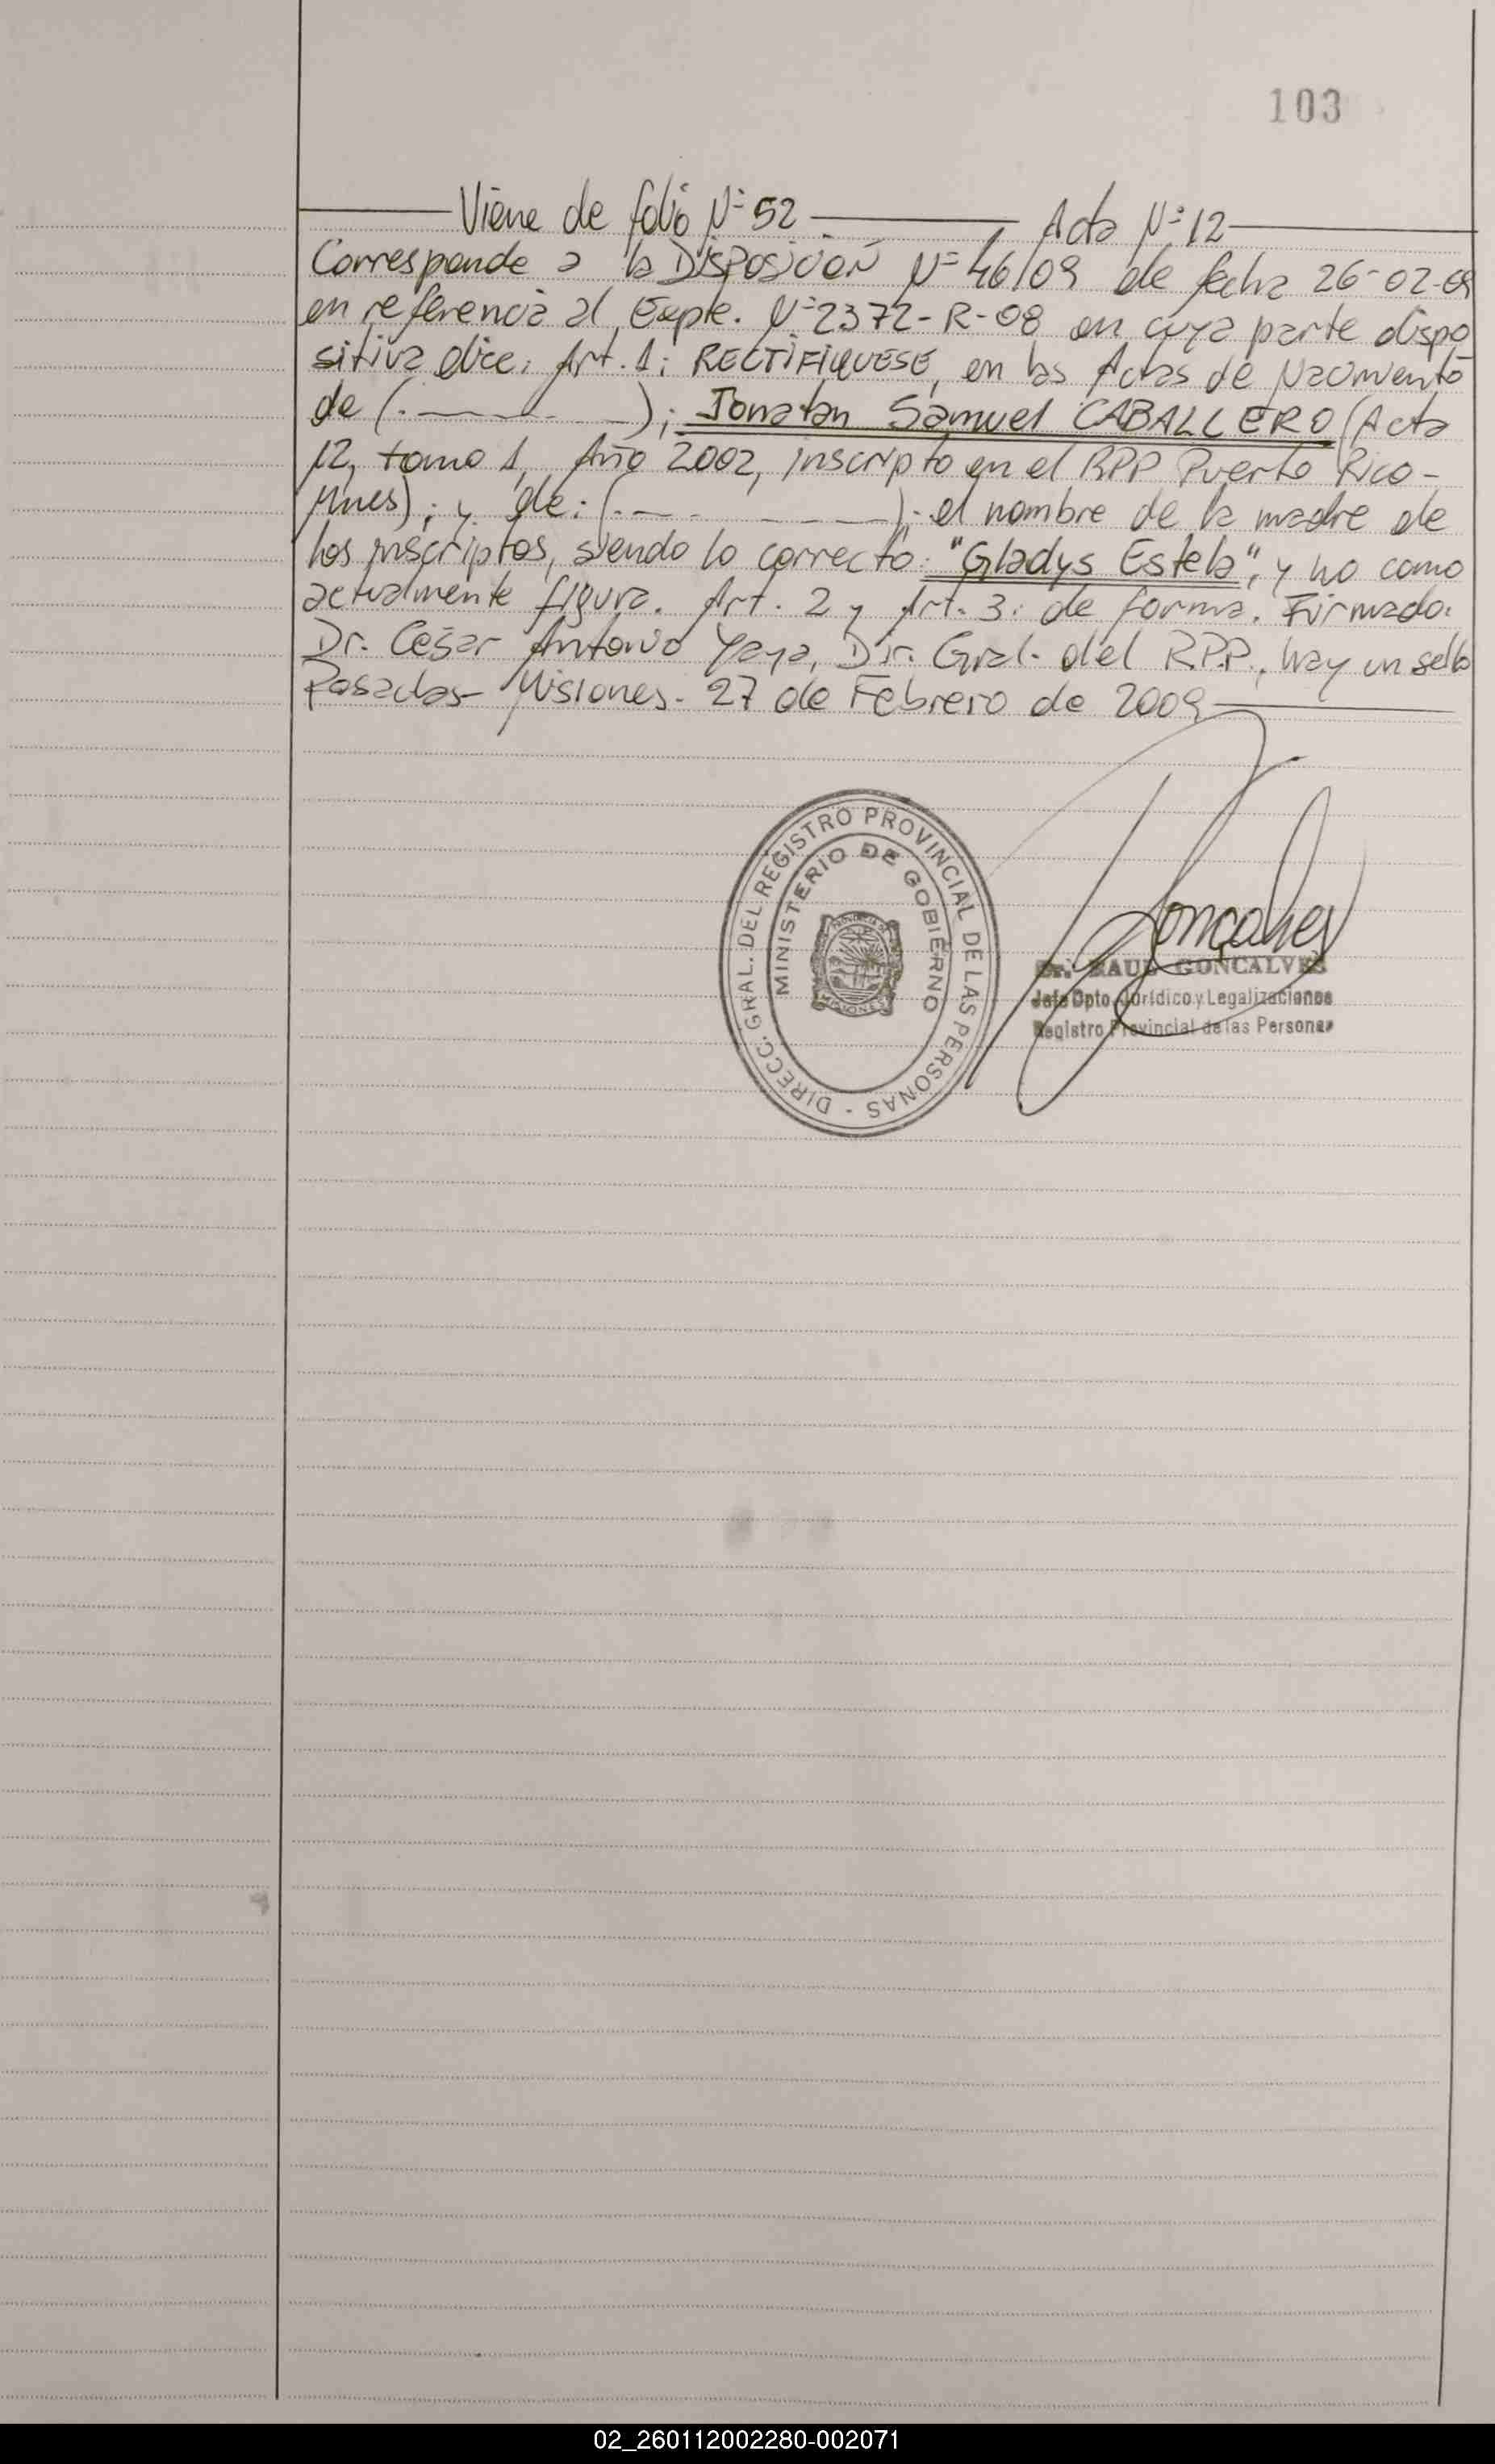 103
Viene de folio Nº 52 Acta Nº 12
Corresponde a la DISPOSICIÓN Nº 46/09 de fecha 26-02-09
en referencia al Expte. Nº 2372-R-08 en cuya parte dispo
sitiva dice: Art. 1: RECTIFIQUESE, en las Actas de Nacimiento
de (. ); Jonatan Samuel CABALLERO (Acta
12, tomo 1, Año 2002, inscripto en el RPP Puerto Rico-
Mnes); y de: (. ); el nombre de la madre de
los inscriptos, siendo lo correcto: "Gladys Estela", y no como
actualmente figura. Art. 2 y Art. 3: de forma. Firmado:
Dr. César Antonio Yaya, Dir. Gral. del R.P.P., hay un sello
Posadas- Misiones- 27 de Febrero de 2009
DIRECC. GRAL. DEL REGISTRO PROVINCIAL DE LAS PERSONAS -
MINISTERIO DE GOBIERNO
PROVINCIA DE
MISIONES
Goncalves
Dr. RAUL GONCALVES
Jefe Dpto. Jurídico y Legalizaciones
Registro Provincial de las Personas
02_260112002280-002071